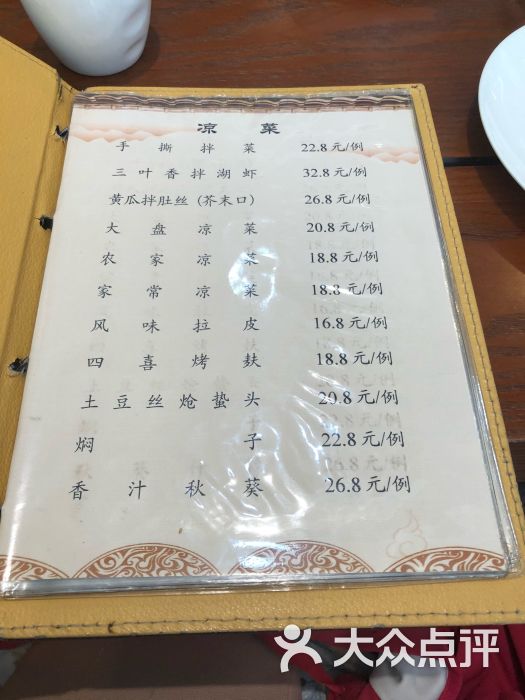 凉菜
手撕拌菜 22.8元/例
三叶香拌湖虾 32.8元/例
黄瓜拌肚丝(芥末口) 26.8元/例
大盘凉菜 20.8元/例
农家凉菜 18.8元/例
家常凉菜 18.8元/例
风味拉皮 16.8元/例
四喜烤麸 18.8元/例
土豆丝炝蛰头 20.8元/例
焖子 22.8元/例
香汁秋葵 26.8元/例
大众点评